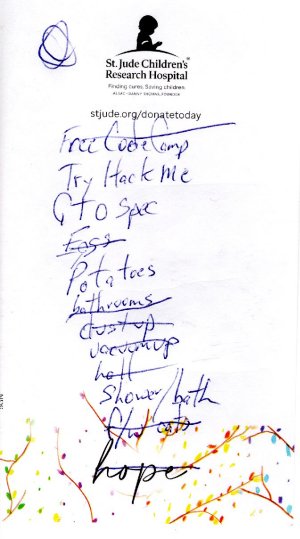 St. Jude Children's
Research Hospital
Finding cures. Saving children.
ALSAC • DANNY THOMAS, FOUNDER
stjude.org/donatetoday
Free Code Camp
Try Hack Me
GTO Spec
Eggs
Potatoes
bathrooms
dust up
vacuum up
hall
Shower/bath
cats
hope